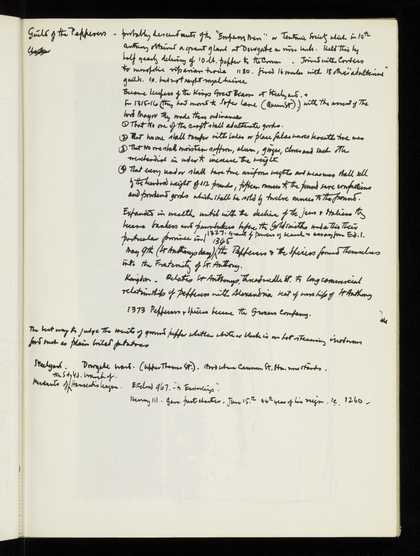 Guild of the Pepperers - probably descendants of the "Emperors Men" or Teutonic Society which in 10th
century obtained a grant at Dowgate as wine hub. Held this by
half yearly delivery of 10 lb. pepper to the Crown. Joined with Corders
for monopolies 1180. Fined 16 marks with 18 other "adulterine"
guilds, i.e. had not sought royal licence.
Became keepers of the Kings Great Beam at Steelyard. &
In 1315-16 (they had moved to Soper Lane (Queen St)) with the consent of the
Lord Mayor they made these ordinances
① That no one of the craft shall adulterate goods.
② That no one shall tamper with bales or place false wares beneath true ones
③ That no one shall moisten saffron, alum, ginger, cloves and such like
merchandise in order to increase the weight
④ That every vendor shall have true uniform weights and measures shall sell
by the hundred weight of 112 pounds, fifteen ounces to the pound save confections
and powdered goods which shall be sold by twelve ounces to the pound.
Expanded in wealth until with the decline of the Jews & Italians they
became bankers and pawnbrokers before the Goldsmiths made this their
particular province in 1327. Grant of powers of search & assay from Ed. I.
1345
May 9th (St Anthonys day) the Pepperers & the Spicers formed themselves
into the Fraternity of St Anthony.
Kingdon. Relates St Anthonys, Threadneedle St. to long commercial
relationships of pepperers with Alexandria seat of worship of St Anthony
1373 Pepperers & Spicers become the Grocers company.
The best way to judge the merits of ground pepper whether white or black is on hot steaming
food such as plain boiled potatoes
Steelyard. Dowgate ward. (Upper Thames St.). Cannon St. Stn. now stands.
Merchants of Hanseatic League. Ethelred 967. "Easterlings".
Henry III. Gave first charter. June 15th 44th year of his reign. i.e. 1260 -